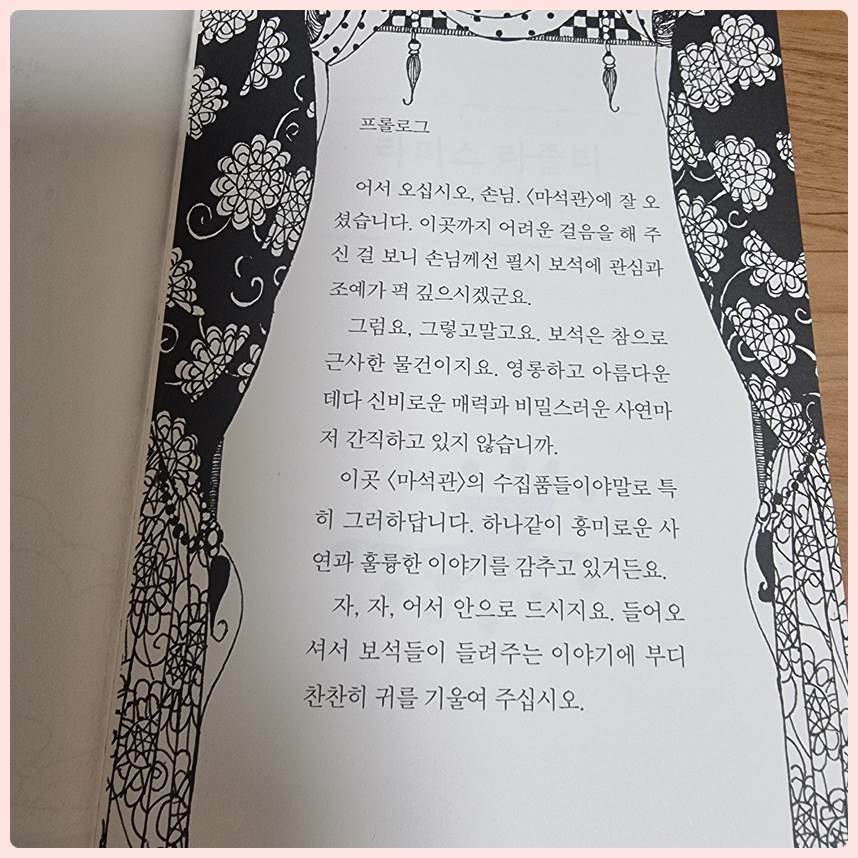 프롤로그
어서 오십시오, 손님. 〈마석관〉에 잘 오
셨습니다. 이곳까지 어려운 걸음을 해 주
신 걸 보니 손님께선 필시 보석에 관심과
조예가 퍽 깊으시겠군요.
그럼요, 그렇고말고요. 보석은 참으로
근사한 물건이지요. 영롱하고 아름다운
데다 신비로운 매력과 비밀스러운 사연마
저 간직하고 있지 않습니까.
이곳 〈마석관〉의 수집품들이야말로 특
히 그러하답니다. 하나같이 흥미로운 사
연과 훌륭한 이야기를 감추고 있거든요.
자, 자, 어서 안으로 드시지요. 들어오
셔서 보석들이 들려주는 이야기에 부디
찬찬히 귀를 기울여 주십시오.